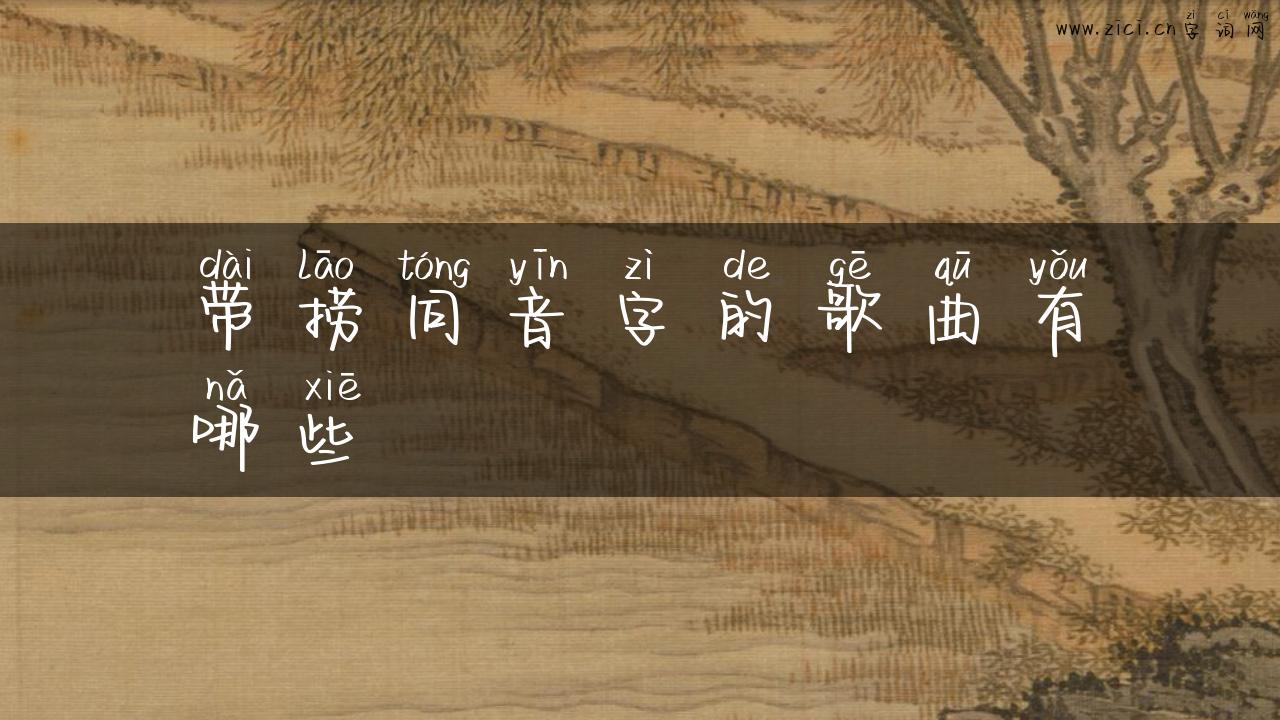 www.zici.cn字词网
zì cí wǎng
dài lāo tóng yīn zì de gē qū yǒu
带捞同音字的歌曲有
nǎ xiē
哪些